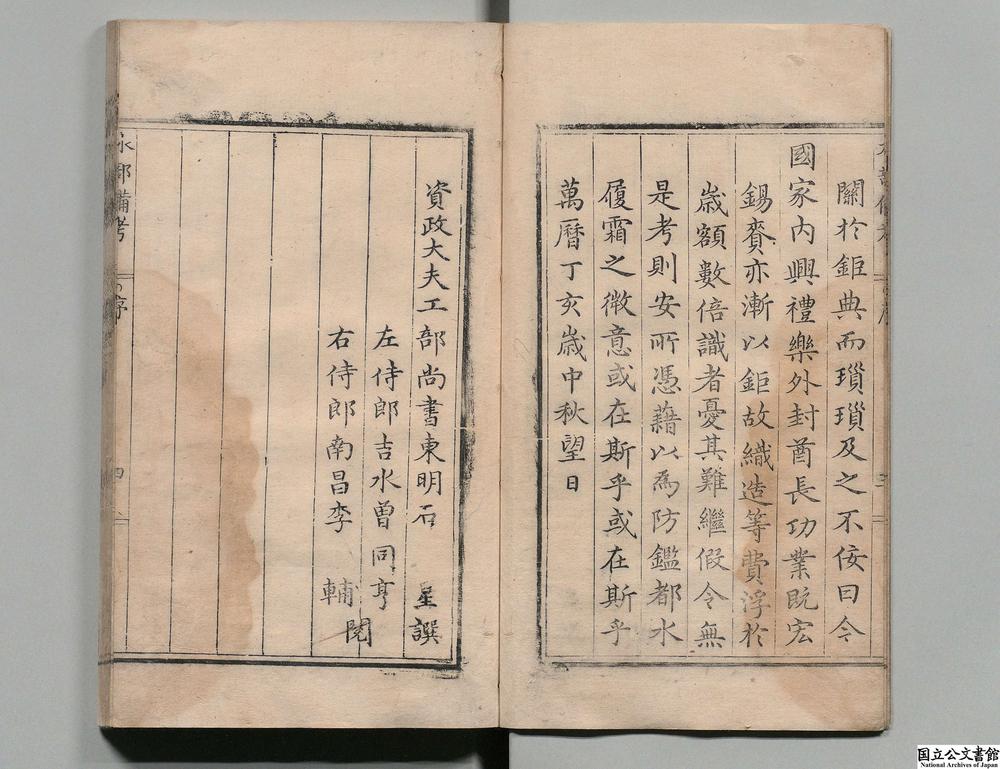 關於鉅典而瑣瑣及之不佞曰今
國家內興禮樂外封酋長功業既宏
錫賚亦漸以鉅故織造等費浮於
歲額數倍識者憂其難繼假令無
是考則安所憑藉以為防鑑都水
履霜之微意或在斯乎或在斯乎
萬曆丁亥歲中秋望日
資政大夫工部尚書東明石 星譔
左侍郎吉水曾同亨
右侍郎南昌李 輔閱
水部備考
序
四
国立公文書館
National Archives of Japan